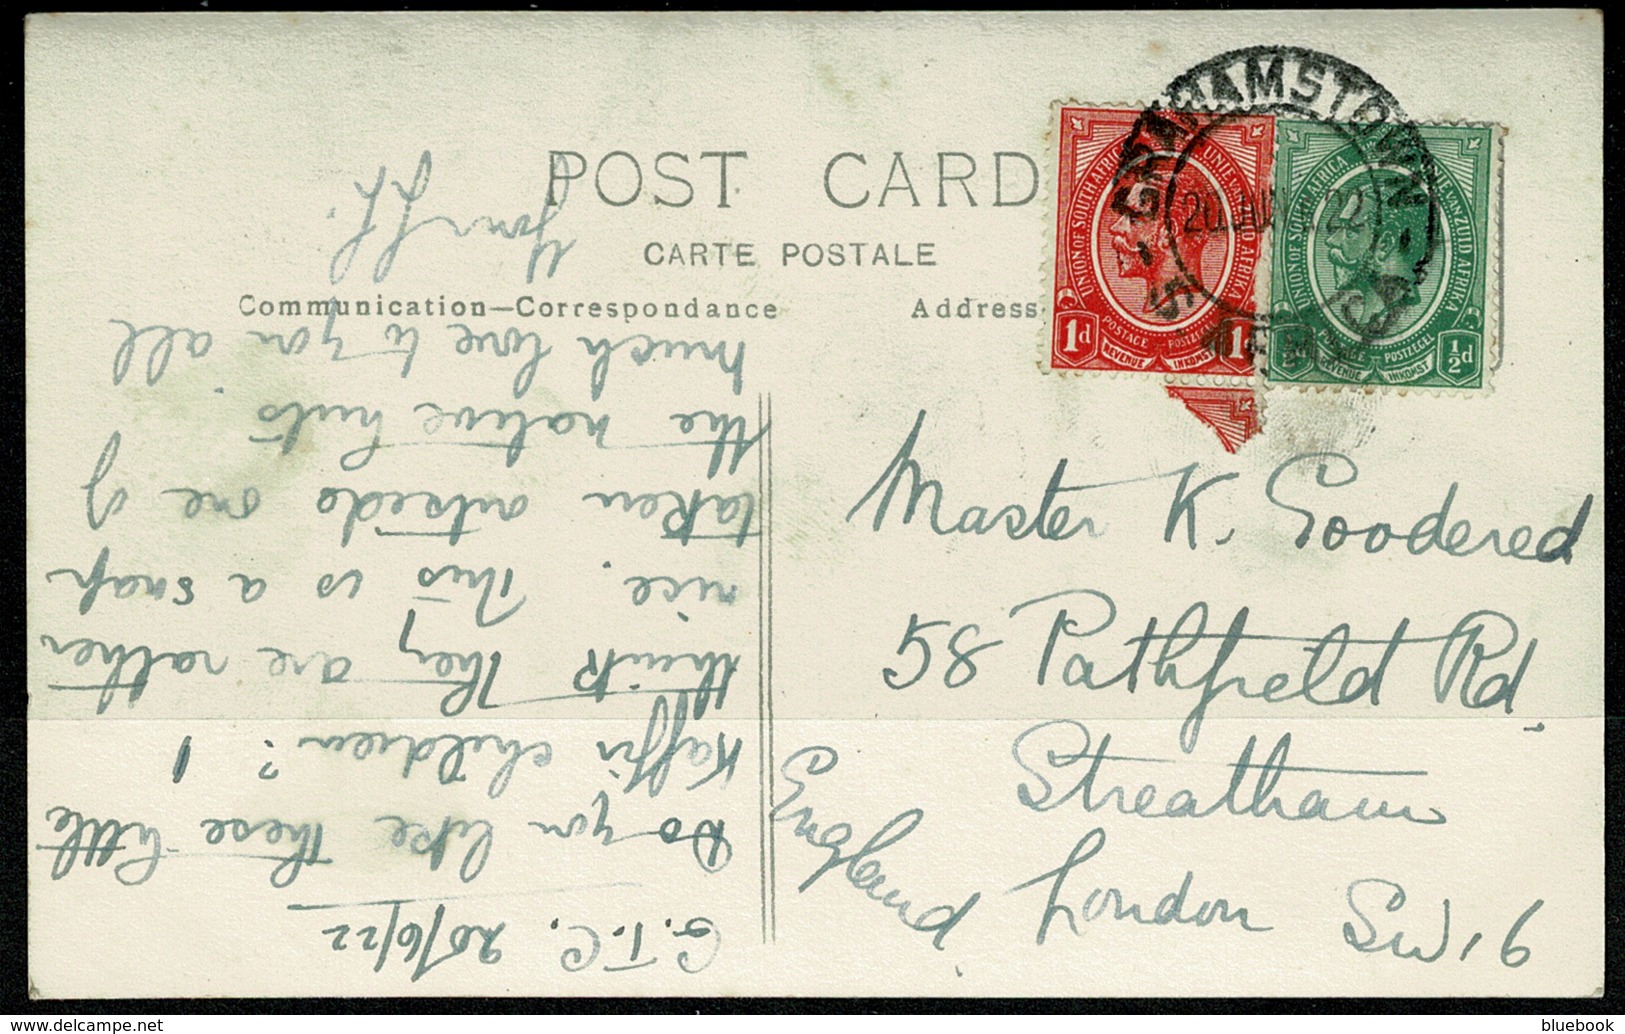 POST CARD
CARTE POSTALE
Communication—Correspondance
Address
GRAHAMSTOWN
20 JUN 22
UNION OF SOUTH AFRICA
UNIE VAN ZUID AFRIKA
1d
POSTAGE
REVENUE
INKOMST
UNION OF SOUTH AFRICA
UNIE VAN ZUID AFRIKA
POSTAGE
POSTZEGEL
REVENUE
INKOMST
½d
Master K. Goodered
58 Pathfield Rd.
Streatham
London SW16
England
G.T.C. 20/6/22
Do you like these little
Kaffir children? I
think they are rather
nice. This is a snap
taken outside one of
the native huts
much love to you all
delcampe.net
bluebook